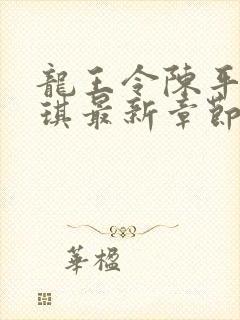 龍王令陳平
琪最新章節
華楹